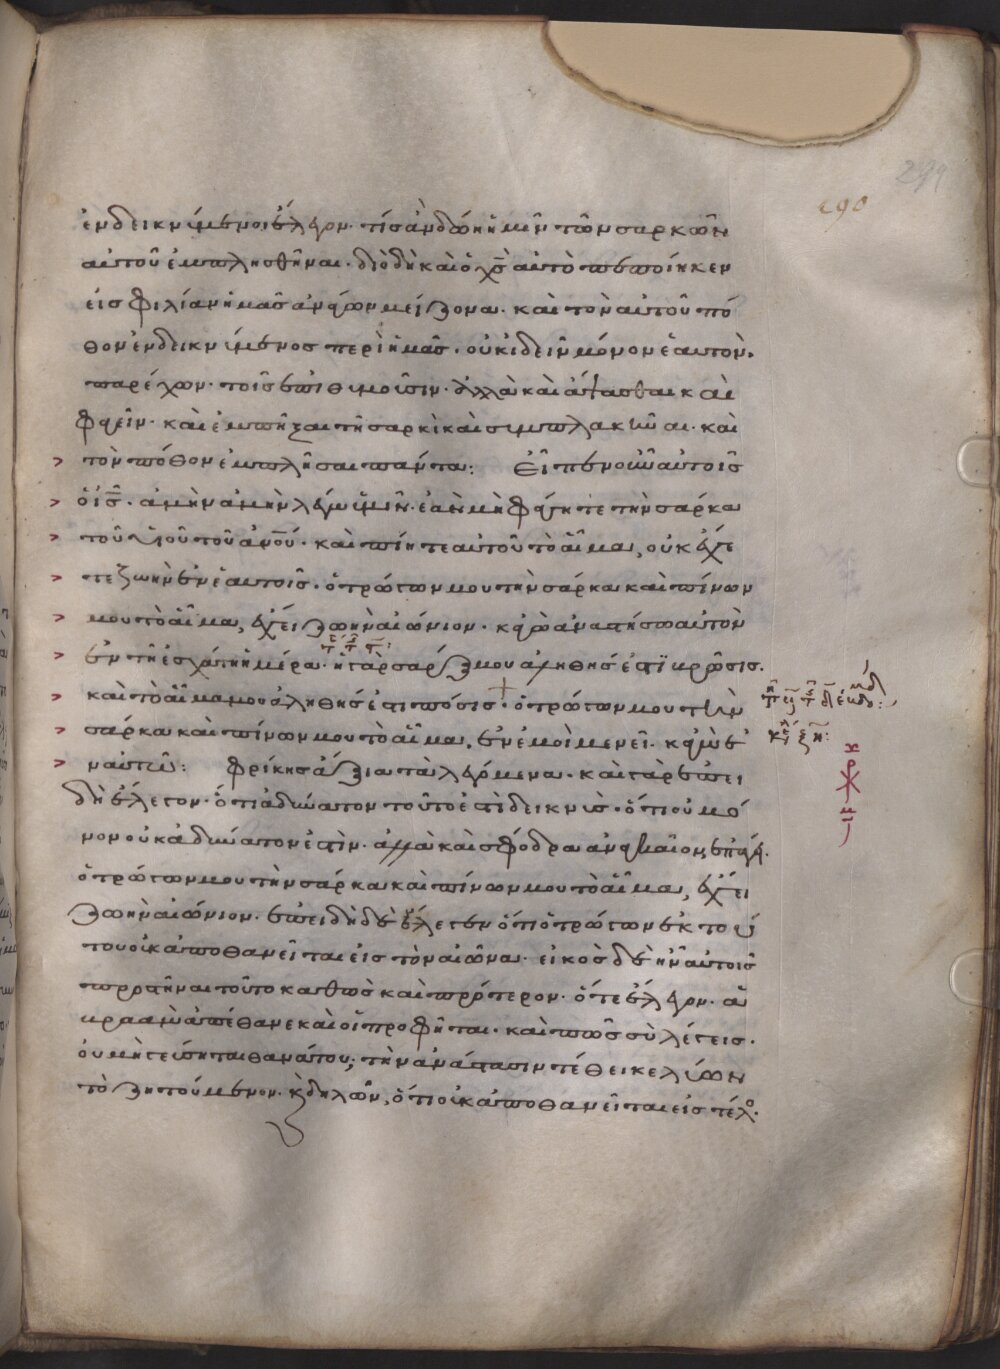 290
ἐνδεικνύμενοι ἔλεγον· τίς ἂν δώη ἡμῖν τῶν σαρκῶν
αὐτοῦ ἐμπλησθῆναι· διὸ δὴ καὶ ὁ χς̄ αὐτὸ πεποίηκεν
εἰς φιλίαν ἡμᾶς ἀνάγων μείζονα· καὶ τὸν αὐτοῦ πό
θον ἐνδεικνύμενος περὶ ἡμᾶς· οὐκ ἰδεῖν μόνον ἑαυτὸν
παρέχων· τοῖς ἐπιθυμοῦσιν· ἀλλὰ καὶ ἅψασθαι καὶ
φαγεῖν· καὶ ἐμπῆξαι τῇ σαρκὶ καὶ συμπλακῆναι· καὶ
τὸν πόθον ἐμπλῆσαι πάντα: Εἶπεν οὖν αὐτοῖς
ὁ ις̄· ἀμὴν ἀμὴν λέγω ὑμῖν· ἐὰν μὴ φάγητε τὴν σάρκα
τοῦ υἱοῦ τοῦ ἀνου̅· καὶ πίητε αὐτοῦ τὸ αἷμα, οὐκ ἔχε
τε ζωὴν ἐν ἑαυτοῖς· ὁ τρώγων μου τὴν σάρκα καὶ πίνων
μου τὸ αἷμα, ἔχει ζωὴν αἰώνιον· κἀγὼ ἀναστήσω αὐτὸν
ἐν τῇ ἐσχάτῃ ἡμέρα· ἡ γὰρ σάρξ μου ἀληθής ἐστι βρῶσις·
καὶ τὸ αἷμα μου ἀληθής ἐστι πόσις· ὁ τρώγων μου τὴν
σάρκα καὶ πίνων μου τὸ αἷμα, ἐν ἐμοὶ μένει· κἀγὼ ἐ
ν αὐτῶ: φρίκης ἄξια τὰ λεγόμενα· καὶ γὰρ ἐπει
δὴ ἔλεγον· ὅτι ἀδύνατον τοῦτο ἐπιδεικνὺς· ὅτι οὐ μό
νον οὐκ ἀδύνατον ἐστὶν· ἀλλὰ καὶ σφόδρα ἀναγκαῖον, ἐπάγει·
ὁ τρώγων μου τὴν σάρκα καὶ πίνων μου τὸ αἷμα, ἔχει
ζωὴν αἰώνιον· ἐπειδὴ δὲ ἔλεγεν ὅτι ὁ τρώγων ἐκ τού
του οὐκ ἀποθανεῖται εἰς τὸν αἰῶνα· εἰκὸς δὲ ἦν αὐτοῖς
προστῆναι τοῦτο καθὼς καὶ πρότερον· ὅτε ἔλεγον· ἀ
βραὰμ ἀπέθανε καὶ οἱ προφῆται· καὶ πῶς σὺ λέγεις·
οὐ μὴ γεύσηται θανάτου; τὴν ἀνάστασιν τέθεικε λύων
τὸ ζητούμενον· κ̀ δηλῶν, ὅτι οὐκ ἀποθανεῖται εἰς τέλο·